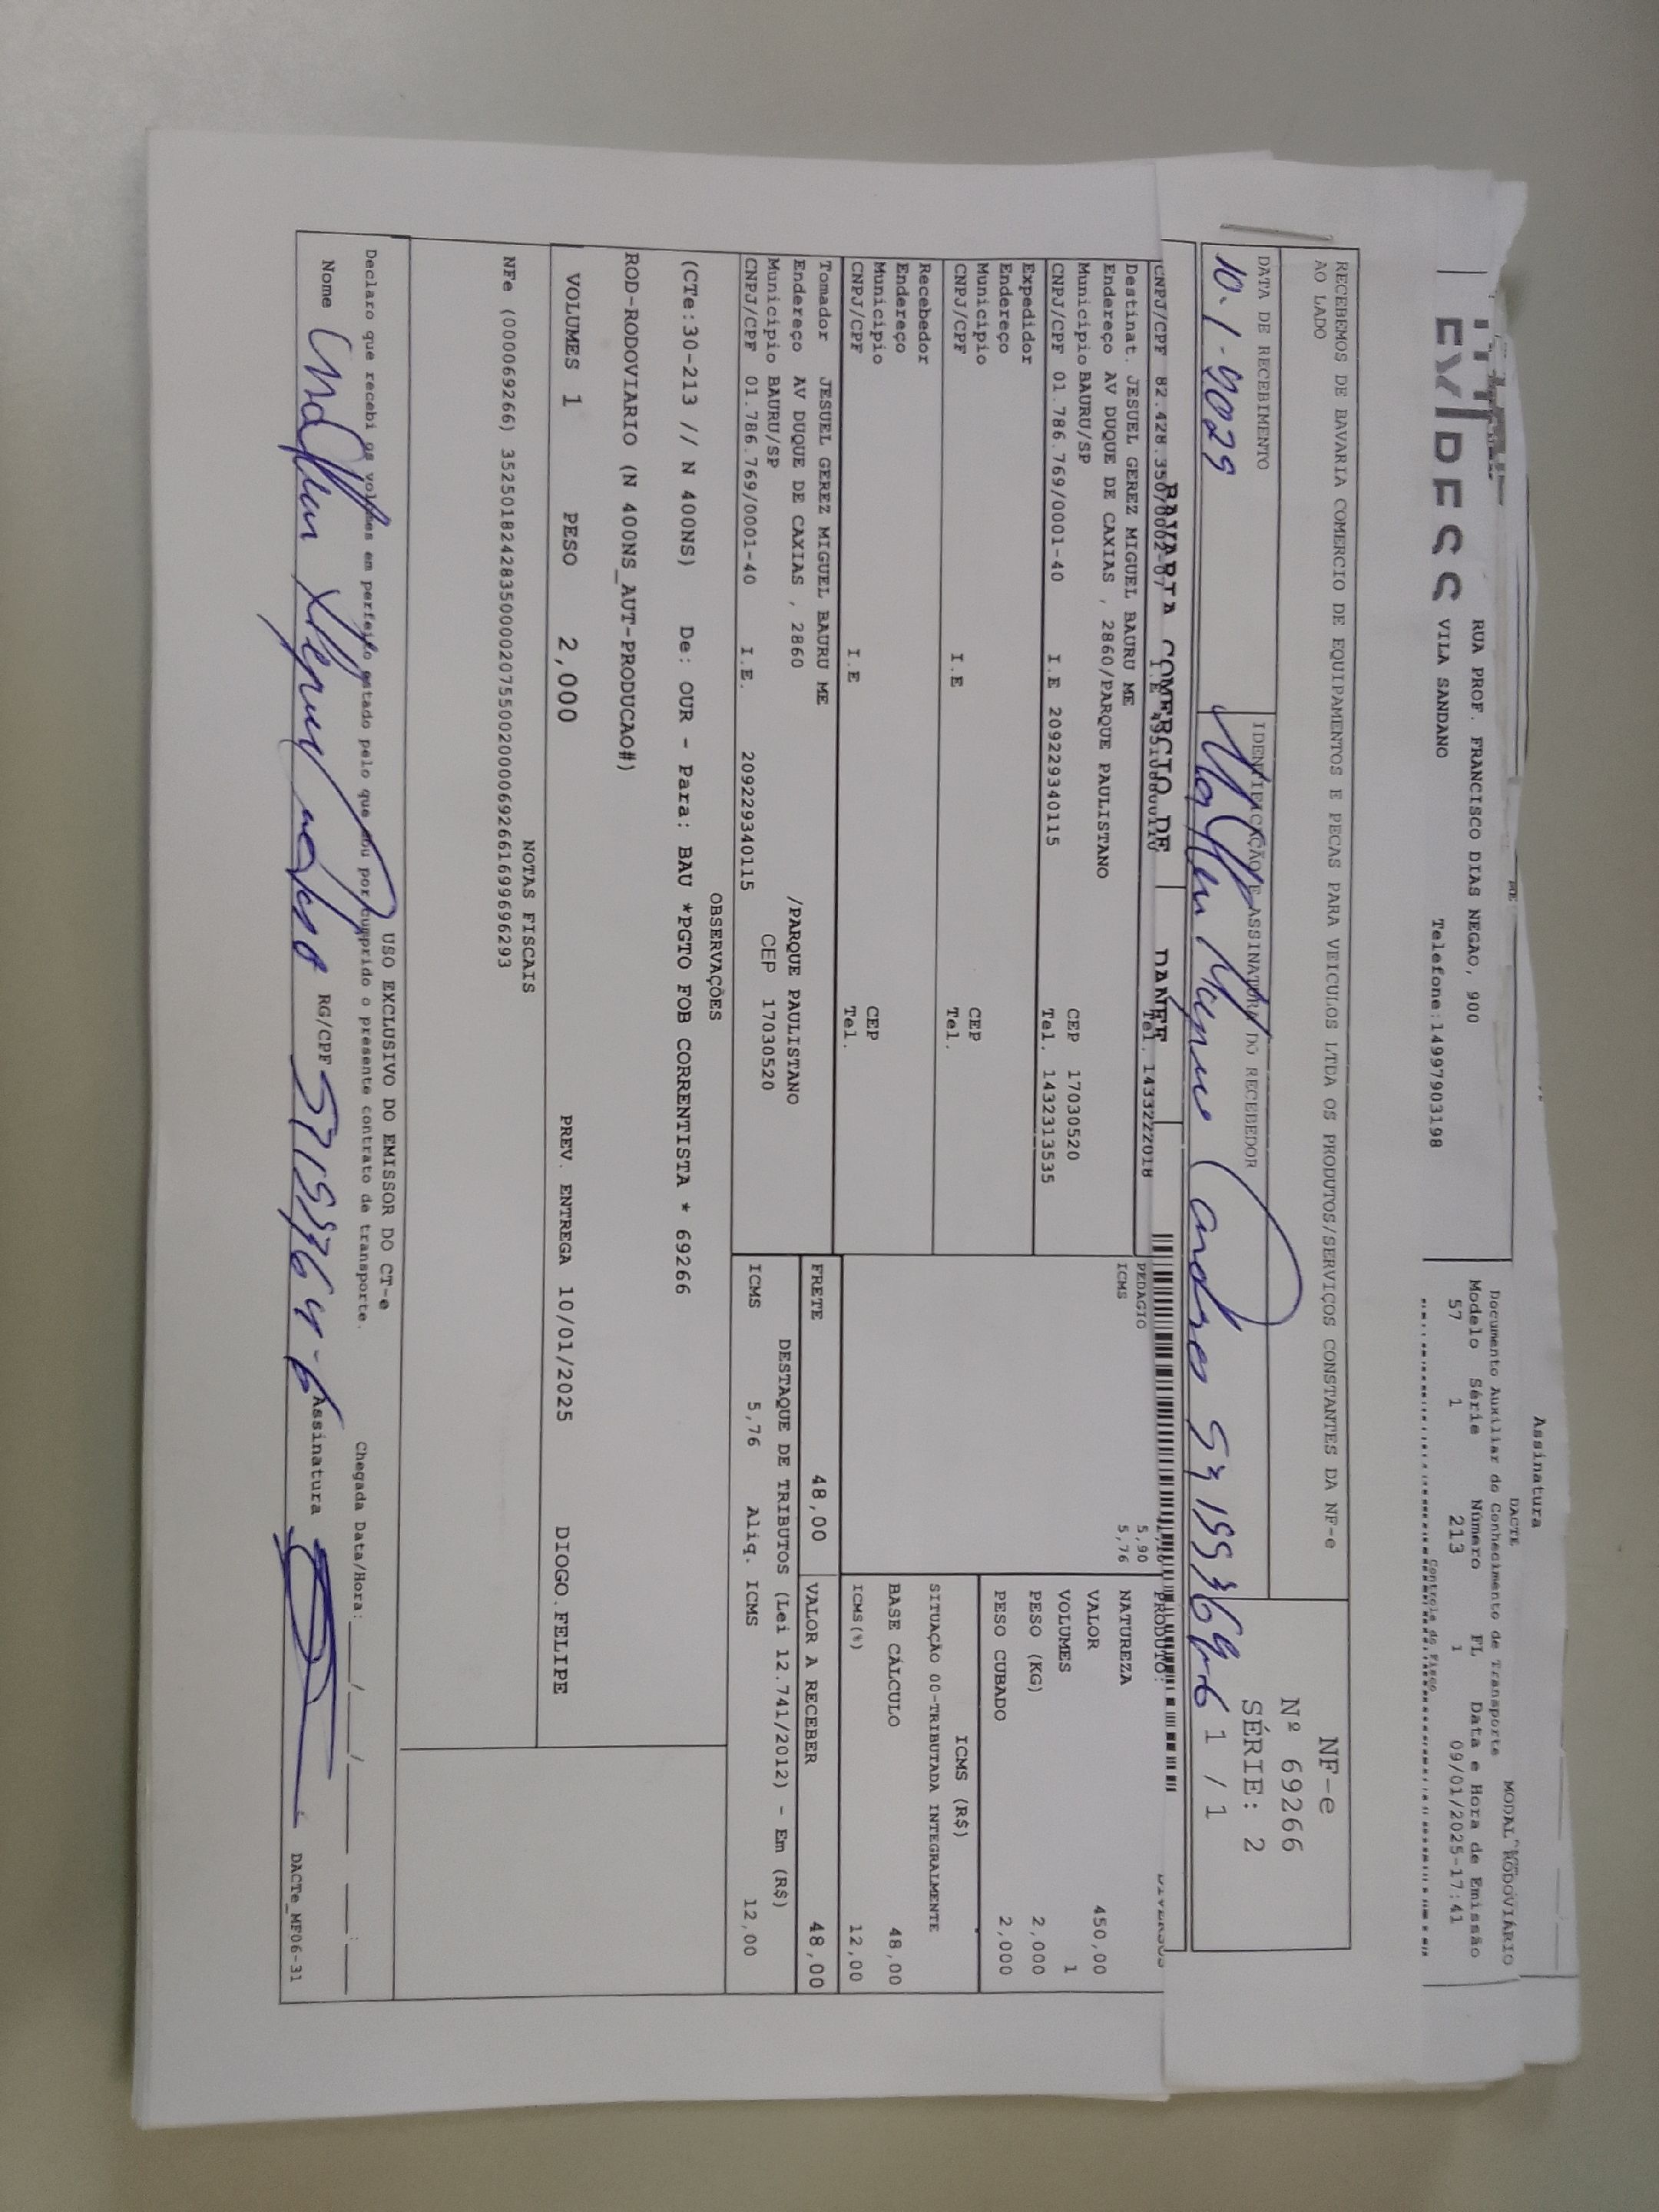 Assinatura
DACTE MODAL RODOVIÁRIO
Documento Auxiliar do Conhecimento de Transporte
RUA PROF. FRANCISCO DIAS NEGAO, 900
Modelo Série Número FL Data e Hora de Emissão
VILA SANDANO Telefone:14997903198
57 1 213 1 09/01/2025-17:41
Controle do Fisco
RECEBEMOS DE BAVARIA COMERCIO DE EQUIPAMENTOS E PECAS PARA VEICULOS LTDA OS PRODUTOS/SERVIÇOS CONSTANTES DA NF-e
AO LADO
NF-e
Nº 69266
SÉRIE: 2
DATA DE RECEBIMENTO
IDENTIFICAÇÃO E ASSINATURA DO RECEBEDOR
1 / 1
BAVARIA COMERCIO DE DANFE
CNPJ/CPF 82.428.350/0002-07 I.E Tel. 1433222018
PRODUTO:
Destinat. JESUEL GEREZ MIGUEL BAURU ME
Endereço AV DUQUE DE CAXIAS , 2860/PARQUE PAULISTANO
Municipio BAURU/SP CEP 17030520
CNPJ/CPF 01.786.769/0001-40 I.E 209229340115 Tel. 1432313535
PEDAGIO 5,90
ICMS 5,76
NATUREZA
VALOR 450,00
VOLUMES 1
PESO (KG) 2,000
PESO CUBADO 2,000
Expedidor
Endereço
Municipio CEP
CNPJ/CPF I.E Tel.
ICMS (R$)
SITUAÇÃO 00-TRIBUTADA INTEGRALMENTE
BASE CÁLCULO 48,00
ICMS(%) 12,00
Recebedor
Endereço
Municipio CEP
CNPJ/CPF I.E Tel.
FRETE 48,00 VALOR A RECEBER 48,00
Tomador JESUEL GEREZ MIGUEL BAURU ME
Endereço AV DUQUE DE CAXIAS , 2860 /PARQUE PAULISTANO
Municipio BAURU/SP CEP 17030520
CNPJ/CPF 01.786.769/0001-40 I.E. 209229340115
DESTAQUE DE TRIBUTOS (Lei 12.741/2012) - Em (R$)
ICMS 5,76 Aliq. ICMS 12,00
OBSERVAÇÕES
(CTe:30-213 // N 400NS) De: OUR - Para: BAU *PGTO FOB CORRENTISTA * 69266
ROD-RODOVIARIO (N 400NS_AUT-PRODUCAO#)
VOLUMES 1 PESO 2,000 PREV. ENTREGA 10/01/2025 DIOGO.FELIPE
NOTAS FISCAIS
NFe (000069266) 35250182428350000207550020000692661699696293
USO EXCLUSIVO DO EMISSOR DO CT-e
Declaro que recebi os volumes em perfeito estado pelo que dou por cumprido o presente contrato de transporte.
Chegada Data/Hora: / / :
Nome RG/CPF Assinatura
DACTe_MF06-31